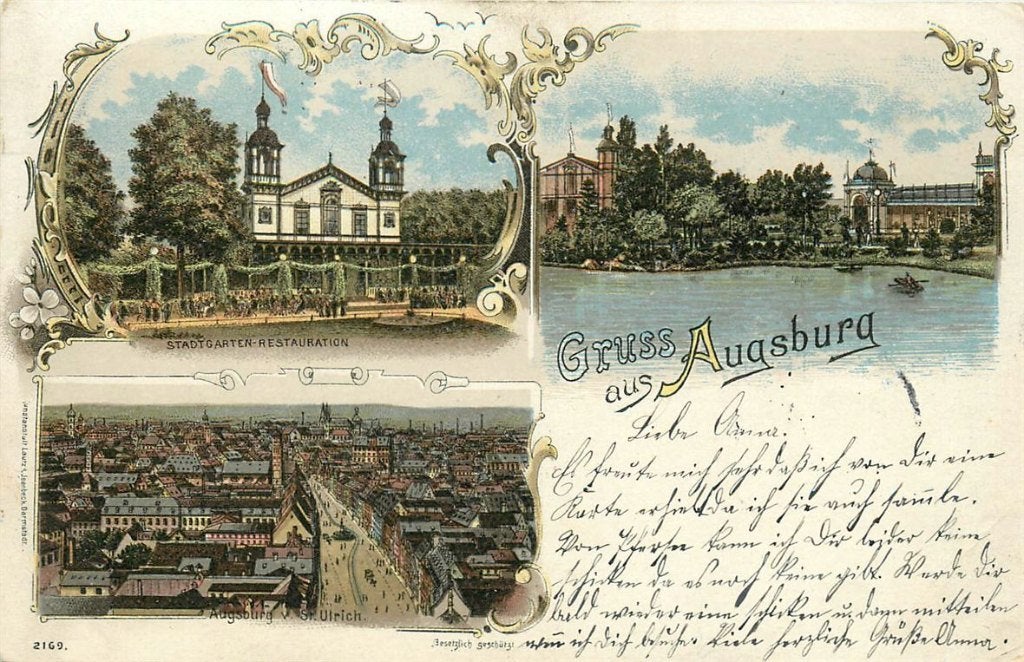 STADTGARTEN-RESTAURATION
Gruss
aus Augsburg
Liebe Anna.
Es freute mich sehr daß ich von Dir eine
Karte erhielt da ich sie auch sammle.
Von Pfersee kann ich Dir leider keine
schicken da es noch keine gibt. Werde Dir
bald wieder eine schicken u. dann mitteilen
wenn ich Dich besuche. Viele herzliche Grüße Anna.
Augsburg v. St. Ulrich.
2169.
Gesetzlich geschützt
Kunstanstalt Lautz & Isenbeck, Darmstadt.